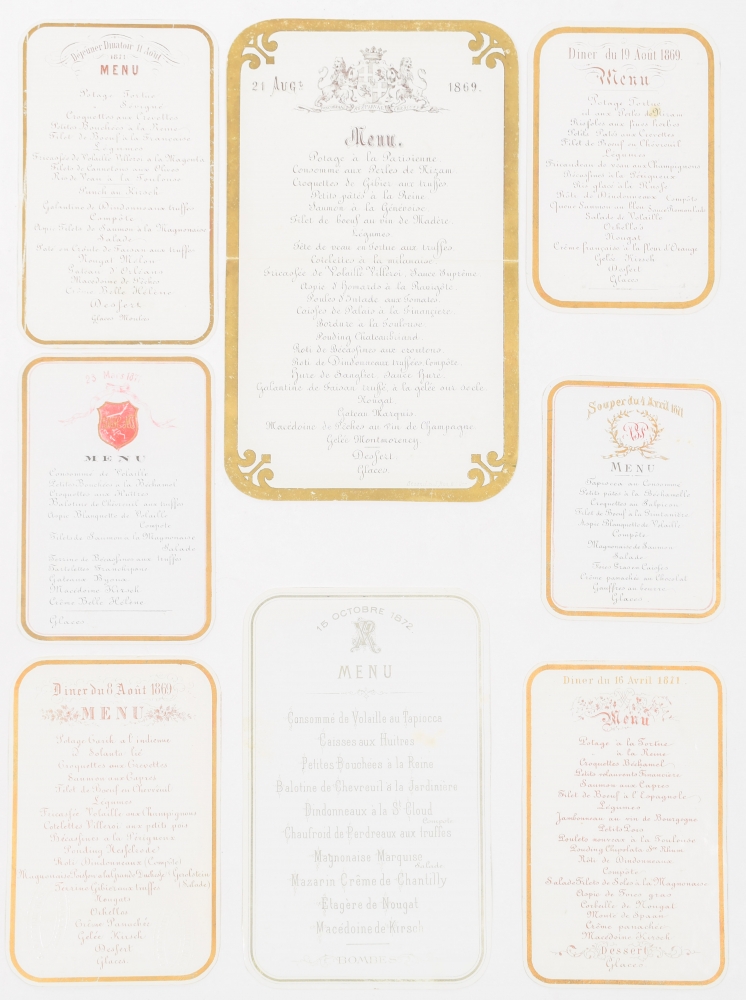 Déjeuner Dinatoir 11 Août
1871
MENU
Potage Tortue
Sévigné
Croquettes aux Crevettes
Petites Bouchées à la Reine
Filet de Boeuf à la Financière
Legumes
Fricassée de Volaille Villeroi à la Magnonaise
Ris de Veau à la Toulouse
Punch au Kirsch
Galantine de Dindonneaux truffés
Compôte
Aspic Filets de Saumon à la Magnonaise
Salade
Pâté en Croute de Faisan aux truffes
Nougat Molow
Gateau d'Orleans
Macedoine de Pêches
Crême Belle Hélène
Dessert
Glaces Moulées
21 Augt. 1869.
Menu.
Potage à la Parisienne.
Consommé aux Perles de Nizam
Croquettes de Gibier aux truffes
Petits pâtés à la Reine
Saumon à la Génevoise
Filet de boeuf au vin de Madère.
Legumes
Tête de veau en Tortue aux truffes.
Cotelettes à la milanaise.
Fricassée de Volaille Villeroi. Sauce Suprême.
Aspic d'Homards à la Ravigote.
Poules d'Intade aux Tomates.
Caisses de Palais à la Financière.
Bordure à la Toulouse.
Pouding Chateaubriand.
Roti de Becassines aux croutons.
Roti de Dindonneaux truffées. Compôte.
Hure de Sanglier. Sauce Hure.
Galantine de Faisan truffé, à la gélée sur socle.
Nougat.
Gateau Marquis.
Macedoine de Pêches au vin de Champagne.
Gelée Montmorency
Dessert.
Glaces.
Diner du 19 Août 1869.
Menu
Potage Tortue
id aux Perles de Nizam
Rissoles aux fines herbes
Petits Patés aux Crevettes
Filet de Boeuf en Chevreuil
Legumes
Fricandeau de veau aux Champignons
Becassines à la Perigueux
Riz glacé à la Russe
Roti de Dindonneaux Compôte
Salade de Volaille
Orhellos
Nougat
Crême française à la fleur d'Orange
Gelée Kirsch
Dessert
Glaces
MENU
Consommé de Volaille
Petites Bouchées à la Béchamel
Croquettes aux Huitres
Balotine de Chevreuil aux truffes
Aspic Blanquette de Volaille
Compôte
Filets de Saumon à la Magnonnaise
Salade
Terrine de Bécassines aux truffes
Tartelettes Franchepane
Gateaux Byaria
Macedoine Kirsch
Crême Belle Hélène
Glaces
Souper du 4 Avril 1871
MENU
Tapiocca au Consommé
Petits pâtés à la Bechamelle
Croquettes au Salpicon
Filet de Boeuf à la Printanière
Aspic Blanquette de Volaille
Compôte
Magnonnaise de Saumon
Salade
Foies Grases Caisses
Crême panachée au Chocolat
Gauffres au beurre
Glaces
Diner du 8 Août 1869
MENU
Croquettes aux Crevettes
Saumon aux Capres
Filet de Boeuf en Chevreuil
Legumes
Cotelettes Villeroi aux petits pois
Becassines à la Perigueux
Pouding Nesselrode
Roti Dindonneaux (Compôte)
(Salade)
Terrine Gibier aux truffes
Nougats
Othellos
Crême Panachée
Gelée Kirsch
Dessert
Glaces
15 OCTOBRE 1872.
MENU
Consommé de Volaille au Tapiocca
Caisses aux Huitres
Petites Bouchees à la Reine
Balotine de Chevreuil à la Jardinière
Dindonneaux à la St Cloud
Compôte
Chaufroid de Perdreaux aux truffes
Magnonaise Marquise
Salade
Mazarin Crême de Chantilly
Etagère de Nougat
Macédoine de Kirsch
BOMBES
Diner du 16 Avril 1871
Menu
Potage à la Tortue
à la Reine
Croquettes Béchamel
Petits vol au vents Financière
Saumon aux Capres
Filet de Boeuf à l'Espagnole
Légumes
Jambonneau au vin de Bourgogne
Petits Pois
Poulets nouveau à la Toulouse
Pouding Chipolata au Rhum
Roti de Dindonneaux
Compôte
Salade Filets de Soles à la Magnonaise
Aspic de Foies gras
Corbeille de Nougat
Monte de Spaan
Crême panachée
Macedoine Kirsch
Dessert
Glaces